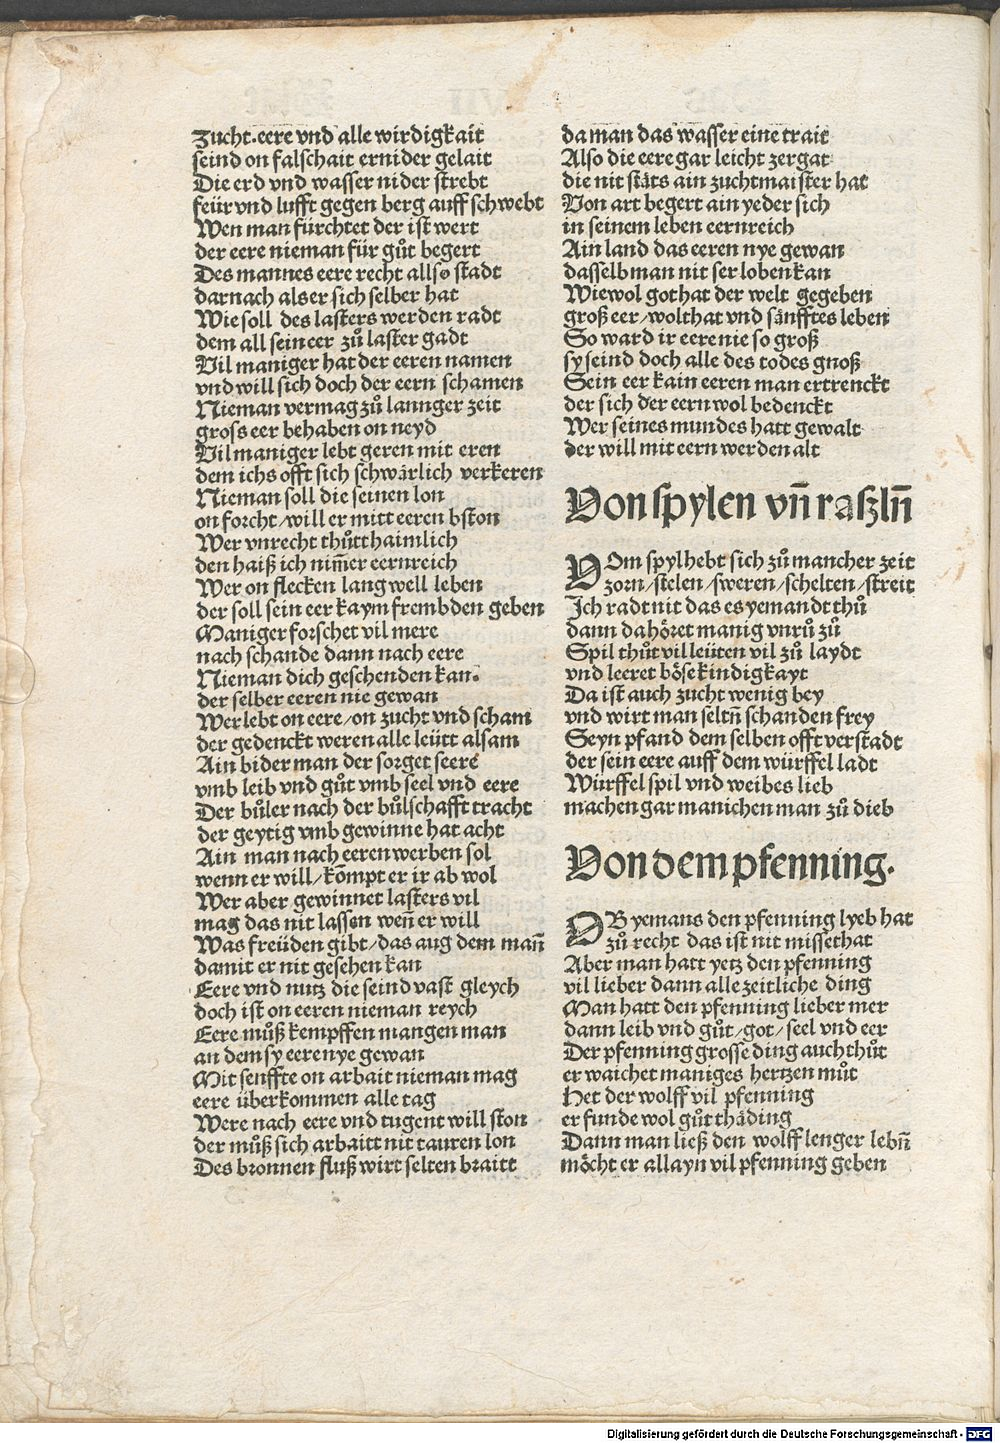 Zucht.eere vnd alle wirdigkait
seind on falschait ernider gelait
Die erd vnd wasser nider strebt
feür vnd lufft gegen berg auff schwebt
Wen man fürchtet der ist wert
der eere nieman für gůt begert
Des mannes eere recht allso stadt
darnach als er sich selber hat
Wie soll des lasters werden radt
dem all sein eer zů laster gadt
Vil maniger hat der eeren namen
vnd will sich doch der eern schamen
Nieman vermag zů lannger zeit
gross eer behaben on neyd
Vil maniger lebt geren mit eren
dem ichs offt sich schwärlich verkeren
Nieman soll die seinen lon
on forcht/will er mitt eeren bston
Wer vnrecht thůtt haimlich
den haiß ich nim̄er eernreich
Wer on flecken lang well leben
der soll sein eer kaym frembden geben
Maniger forschet vil mere
nach schande dann nach eere
Nieman dich geschenden kan.
der selber eeren nie gewan
Wer lebt on eere/on zucht vnd scham
der gedenckt weren alle leütt alsam
Ain bider man der sorget seere
vmb leib vnd gůt vmb seel vnd eere
Der bůler nach der bůlschafft tracht
der geytig vmb gewinne hat acht
Ain man nach eeren werben sol
wenn er will/kom̄pt er ir ab wol
Wer aber gewinnet lasters vil
mag das nit lassen wen̄ er will
Was freüden gibt/das aug dem man̄
damit er nit gesehen kan
Eere vnd nutz die seind vast gleych
doch ist on eeren nieman reych
Eere můß kempffen mangen man
an dem sy eere nye gewan
Mit senffte on arbait nieman mag
eere überkommen alle tag
Were nach eere vnd tugent will ston
der můß sich arbaitt nit tauren lon
Des bronnen fluß wirt selten braitt
da man das wasser eine trait
Also die eere gar leicht zergat
die nit stäts ain zuchtmaister hat
Von art begert ain yeder sich
in seinem leben eernreich
Ain land das eeren nye gewan
dasselb man nit ser loben kan
Wiewol got hat der welt gegeben
groß eer/wolthat vnd sänfftes leben
So ward ir eere nie so groß
sy seind doch alle des todes gnoß
Sein eer kain eeren man ertrenckt
der sich der eern wol bedenckt
Wer seines mundes hatt gewalt
der will mit eern werden alt
Von spylen vn̄ raszln̄
VOm spyl hebt sich zů mancher zeit
zorn/stelen/sweren/schelten/streit
Ich radt nit das es yemandt thů
dann da höret manig vnrů zů
Spil thůt vil leüten vil zů laydt
vnd leeret böse kindigkayt
Da ist auch zucht wenig bey
vnd wirt man seltn̄ schanden frey
Seyn pfand dem selben offt verstadt
der sein eere auff dem würffel ladt
Würffel spil vnd weibes lieb
machen gar manichen man zů dieb
Von dem pfenning.
OB yemans den pfenning lyeb hat
zů recht das ist nit missethat
Aber man hatt yetz den pfenning
vil lieber dann alle zeitliche ding
Man hatt den pfenning lieber mer
dann leib vnd gůt/got/seel vnd eer
Der pfenning grosse ding auch thůt
er waichet maniges hertzen můt
Het der wolff vil pfenning
er funde wol gůt thäding
Dann man ließ den wolff lenger lebn̄
möcht er allayn vil pfenning geben
Digitalisierung gefördert durch die Deutsche Forschungsgemeinschaft - DFG